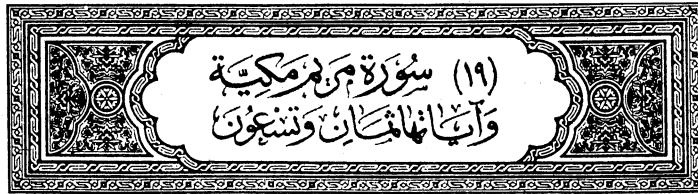 (١٩) سُورَة مَريَم مَكيَّة
وَآيَاتهَا ثَمَانِ وَتِسْعُونَ